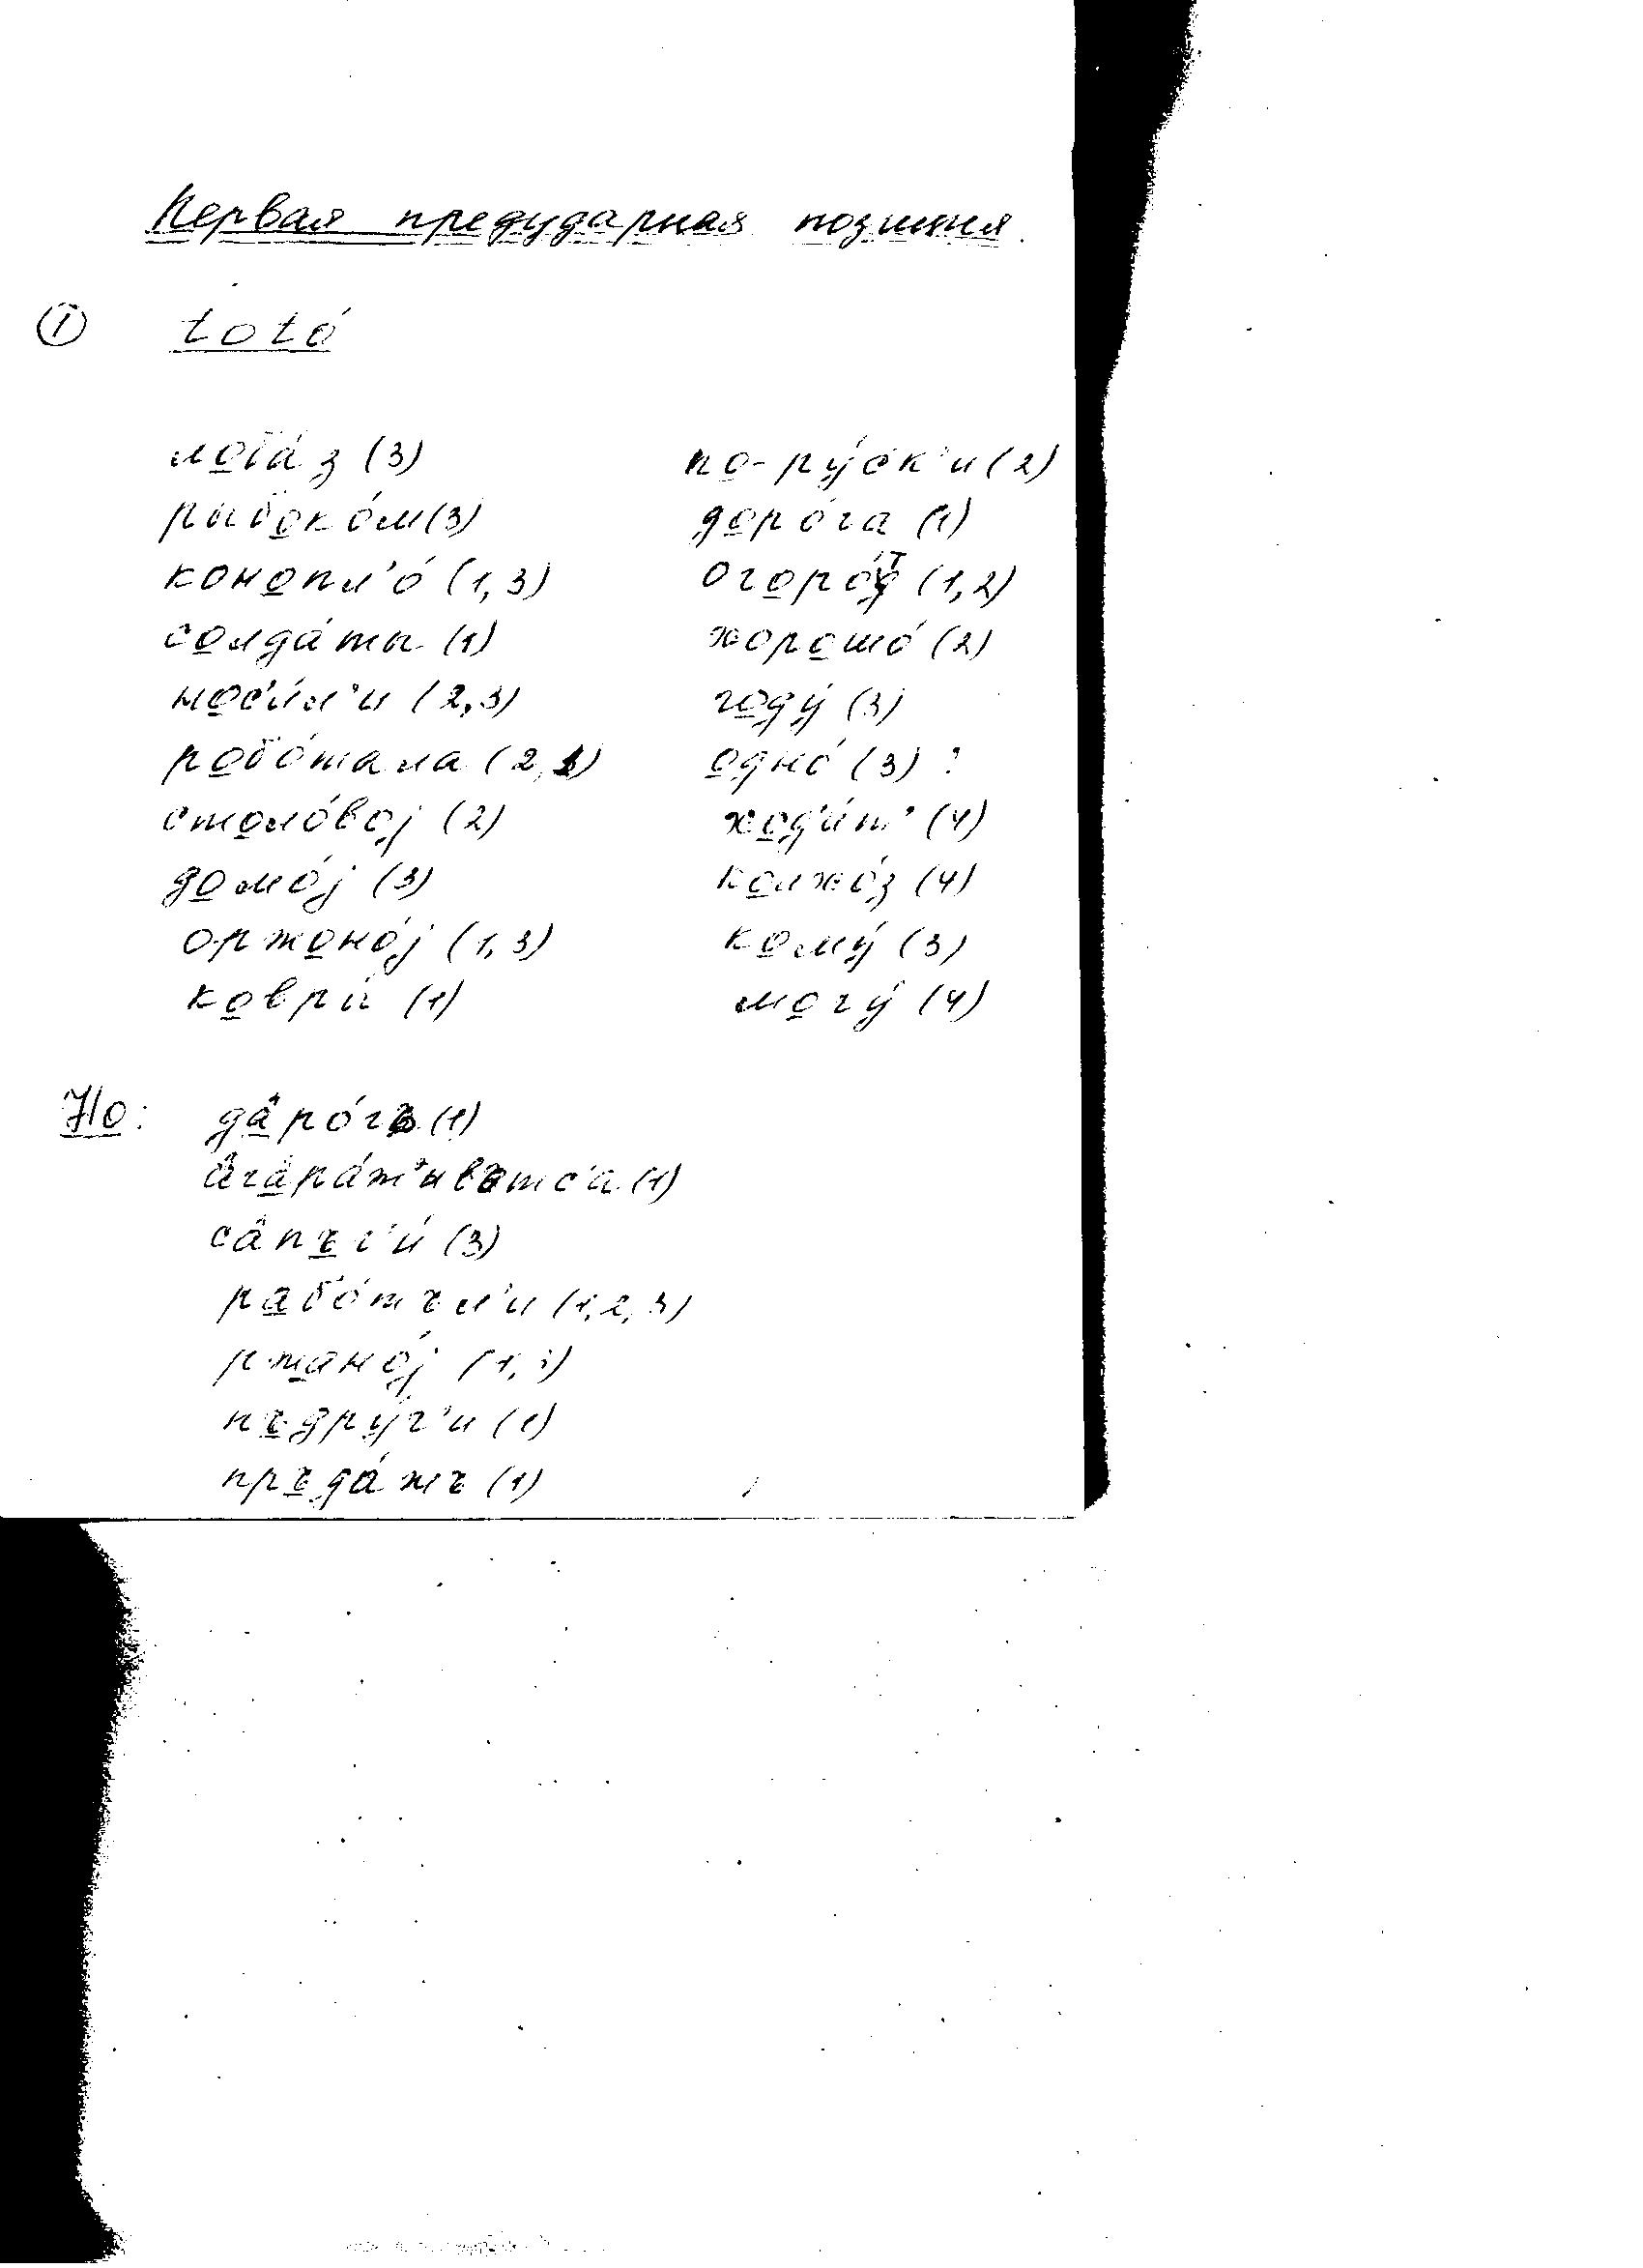 Первая предударная позиция.
① totó
лоба́з (3)
рыбоко́м (3)
конопл'о́ (1,3)
солда́ты (1)
нос'и́л'и (2,3)
робо́тала (2,1)
столо́вој (2)
домо́ј (3)
оржоно́ј (1,3)
ковры́ (1)
по-ру́ск'и (2)
доро́га (1)
огоро́т (1,2)
хорошо́ (2)
году́ (3)
одно́ (3) ?
ход'и́т' (4)
колхо́з (4)
кому́ (3)
могу́ (4)
Но: да̂ро́гъ (1)
а̂га̂ра́ж'ивътс'а (1)
са̂пъг'и́ (3)
рабо́тъл'и (1,2,3)
ржано́ј (1,3)
пъдру́г'и (1)
пръда́жъ (1)